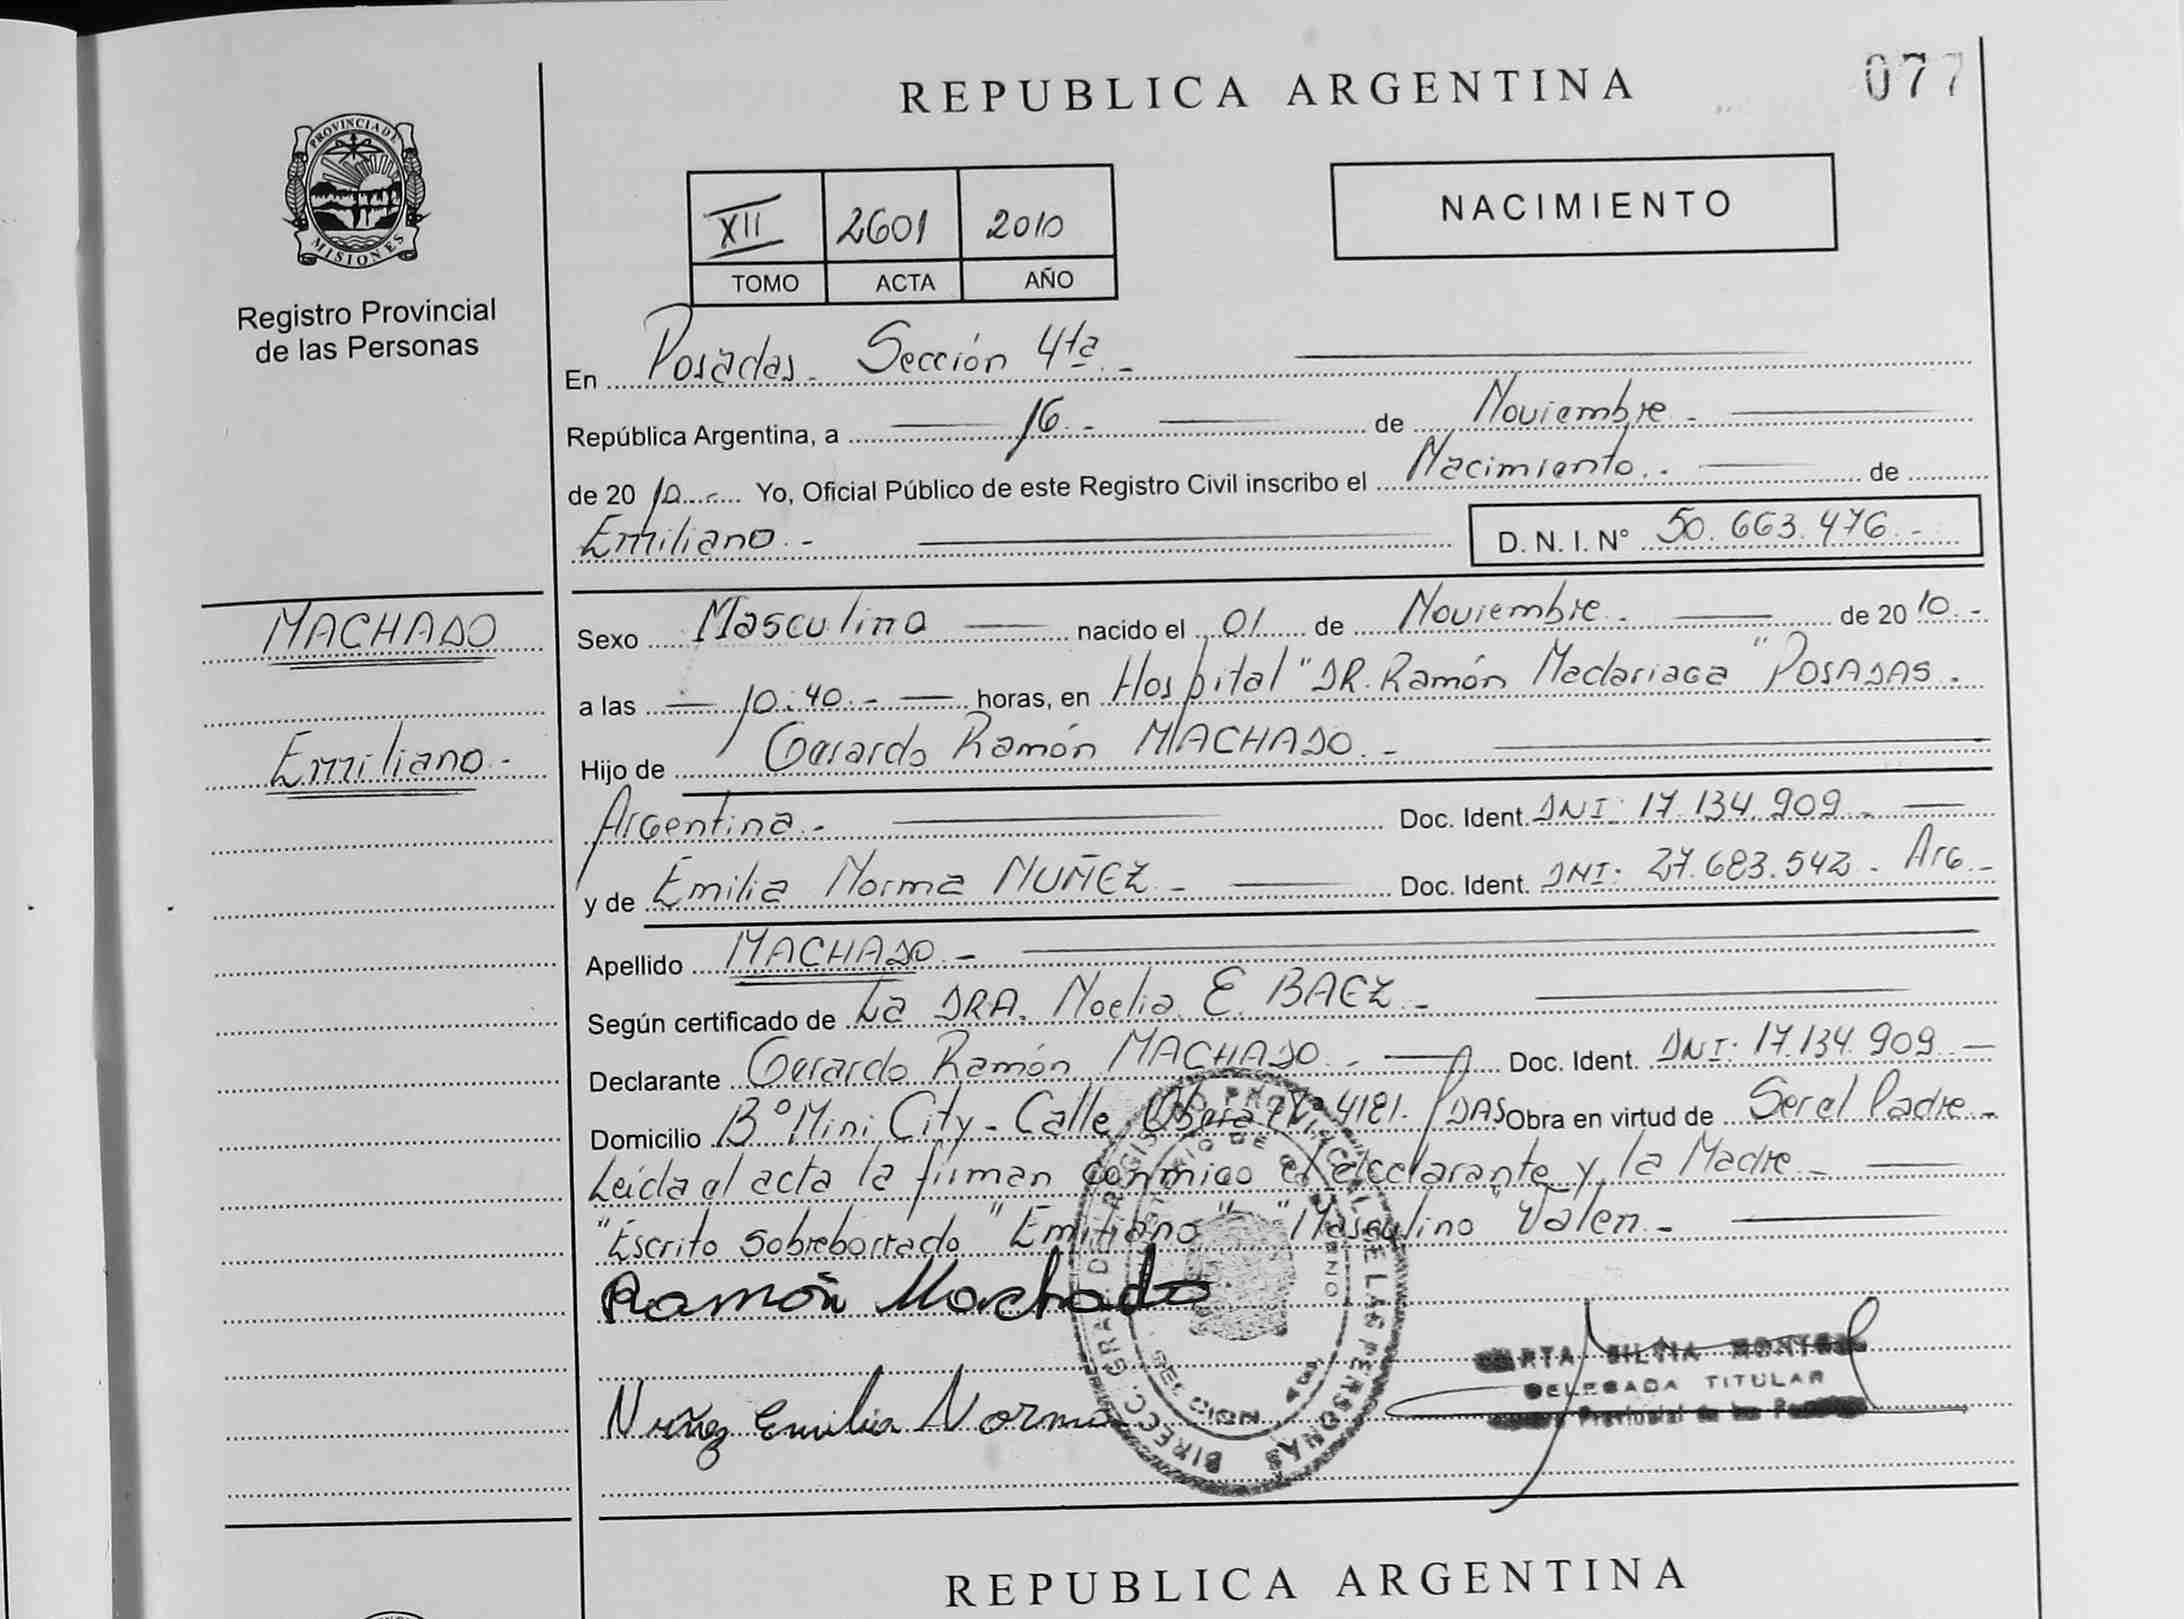 077
REPUBLICA ARGENTINA
PROVINCIA DE
MISIONES
Registro Provincial
de las Personas
XII 2601 2010
TOMO ACTA AÑO
NACIMIENTO
En Posadas. Sección 4ta.-
República Argentina, a 16.- de Noviembre.-
de 20 10.- Yo, Oficial Público de este Registro Civil inscribo el Nacimiento.- de
Emiliano.- D. N. I. N° 50.663.476.-
MACHADO
Emiliano.-
Sexo Masculino nacido el 01 de Noviembre. de 20 10.-
a las 10:40.- horas, en Hospital "DR. Ramón Madariaga" POSADAS.
Hijo de Gerardo Ramón MACHADO.-
Argentina.- Doc. Ident. DNI: 17.134.909.-
y de Emilia Norma NUÑEZ.- Doc. Ident. DNI: 27.683.542.- Arg.-
Apellido MACHADO.-
Según certificado de La DRA. Noelia E. BAEZ.-
Declarante Gerardo Ramón MACHADO.- Doc. Ident. DNI: 17.134.909.-
Domicilio B° Mini City - Calle Oberá N° 4181. PDAS Obra en virtud de Ser el Padre.-
Leída el acta la firman conmigo el declarante y la Madre.-
"Escrito sobreborrado" "Emiliano" "Masculino" Valen.-
Ramón Machado
Nuñez Emilia Norma
DELEGADA TITULAR
REPUBLICA ARGENTINA